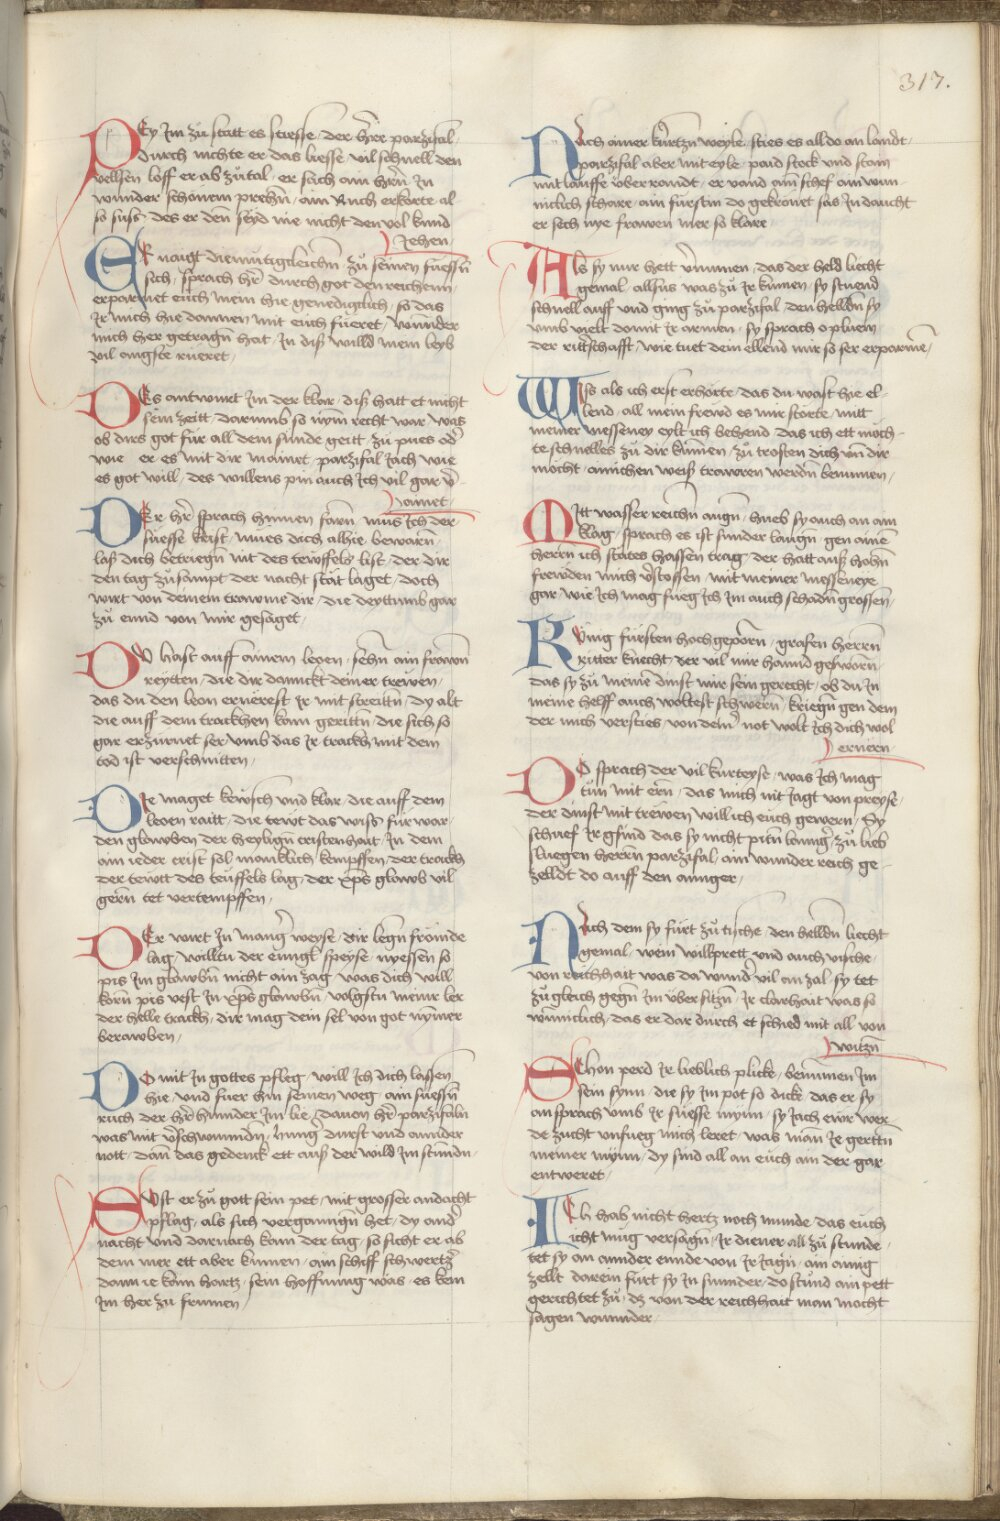 317.
Pey Im zů statt es stiesse / der her parzifal /
durch nichte er das liesse / vil schnell den
vellsen loff er ab zů tal / er sach ain hern In
wunder schonem prehn / ain Ruch erkorte al
so suss / des er den seyd nie nicht den vol kund
Jehen /
Er naigt diemutigcleichn / zů seinen fuessn
sich / sprach her durch got den reichenn
erparmet euch mein hie genediglich / so das
Ir mich hie dannen mit euch fueret / wunder
mich her getragn hat / In diss willd mein leyb
vil angste rueret /
Des antwurt Im der klar / diss hatt et nicht
sein zeitt / darumb so nym recht war / was
ob dirs got für all dein sunde geitt / zů pues oder
wie er es mit dir mainet / parzifal Jach wie
es got will / des willens pin auch Ich vil gar ver
ainet /
Der her sprach hinnen farn / mus Ich der
suesse krist / mues dich alhie bewarn /
lass dich betriegn nit des tewffels list / der dir
den tag zůsampt der nacht stät laget / doch
wirt von deinem trawme dir / die deyttumb gar
zů ennd von mir gesaget /
Du hast auff ainem leoen / sehn ain frawen
reytten / die dir danckt deiner trewen /
das du den leon ernerest Ir mit streittn / dy alt
die auff dem trackhen kam gerittn / die sich so
gar erzurnet ser / umb das Ir trackh mit dem
tod ist verschnitten /
Die maget kewsch und klar / die auff dem
leoen raitt / die tewt das wiss für war /
den glawben der heyligen cristenhait / In dem
ain ieder crist sol manlich kempffen / der trackh
der tewtt des teuffels lag / der xps glawb vil
gern tet vertempffen /
Er wirt In manger weyse / dir legn fröinde
lag / willtu der ewigen speyse / nyessen so
pis Im glawbn nicht ain zag / was dich will
korn pis vest In xps glawbn / volgstu meinr ler
der helle trackh / dir mag dein sel von got nymer
berawben /
Do mit In gottes pfleg / will Ich dich lassen
hie / und fuer hin seinen weg / ain suessn
ruch der her hinnder Im lie / davon her parzifaln
was mit verschwunnden / hunger durst und annder
nott / dann das gedenck ett auss der wild Im stunndn /
Sust er zů gott sein pet / mit grosser andacht
pflag / als sich vergangen het / dy ander
nacht und darnach kam der tag / so sicht er ab
dem mer ett aber kumen / ain schiff schwertzer
dann ie kain hartz / sein hoffnung was / es kem
Im her zů frumen /
Nach ainer kurtzn weyle / sties es all do an landt /
parzifal aber mit eyle / paid stock und stain
mit lauffe über randt / er vand ain schef ain wun
niclich schare / ain fürstin do gekronet sas In daucht
er sech nye frawen mer so klare
Als sy nur hett vernumen / das der held liecht
gemal / allsus was zů Ir kumen / sy stuend
schnell auff und ging zů parzifal / den helldn sy
umb vielt do mit Ir armen / sy sprach o pluem
der rittschafft / wie tuet dein ellend mir so ser erparmen /
Wiss als ich erst erhorte / das du wast hie el
lend / all mein frewd es mir storte / mitt
meiner messeney eylt ich behend / das ich ett moch
te schnelles zů dir kumen / zů trosten dich / und dir
mocht / ainichen weiss trawren werdn benumen /
Mitt wasser reichn augn / hueb sy auch an ain
klag / sprach es ist sunder laugn / gen ainem
herrn ich stätes hassen trag / der hatt auss hohn
frewden mich verstossen / mit meiner messeneye
gar / wie Ich mag fueg Ich Im auch schadn grossen /
Küng fürsten hochgeporn / grafen herrn
ritter knecht / der vil mir hannd gesworn /
das sy zů meinem dinst mir sein gerecht / ob du In
meine helff auch woltest schwern / kriegn gen dem
der mich versties / von dem not wolt Ich dich wol
ernern /
Do sprach der vil kurteyse / was Ich mag
tůn mit ern / das mich nit Jagt von preyse /
der dinst mit trewen will ich euch gewern / Sy
schuef Ir gsind das sy nicht pitn lannger / zů lieb
sluegen herrn parzifal / ain wunder reich ge
zelldt do auff den annger /
Nach dem sy fürt zů tische / den helldn liecht
gemal / wein willprett und auch vische /
von reichhait was da wunder vil an zal / sy tet
zů gleich gegn Im über sitzn / Ir clarhait was so
wunniclich / das er dar durch et schied mit all von
witzn
Schon perd Ir lieblich plicke / benumen Im
sein synn / die sy Im pot so dick / das er sy
an sprach umb Ir suesse mynn / sy Jach ewr wer
de zucht unfueg mich leret / was man Ie gerttn
meiner mynn / dy sind all an euch ain der gar
entweret /
Ich hab nicht hertz noch munde / das euch
icht mug versagn / Ir diener all zů stunde /
tet sy an annder ennde von Ir Jagn / ain ainig
zellt darein fürt sy In sunnder / do stůnd ain pett
gerichtet zů / dz von der reichhait man mocht
sagen wunnder /